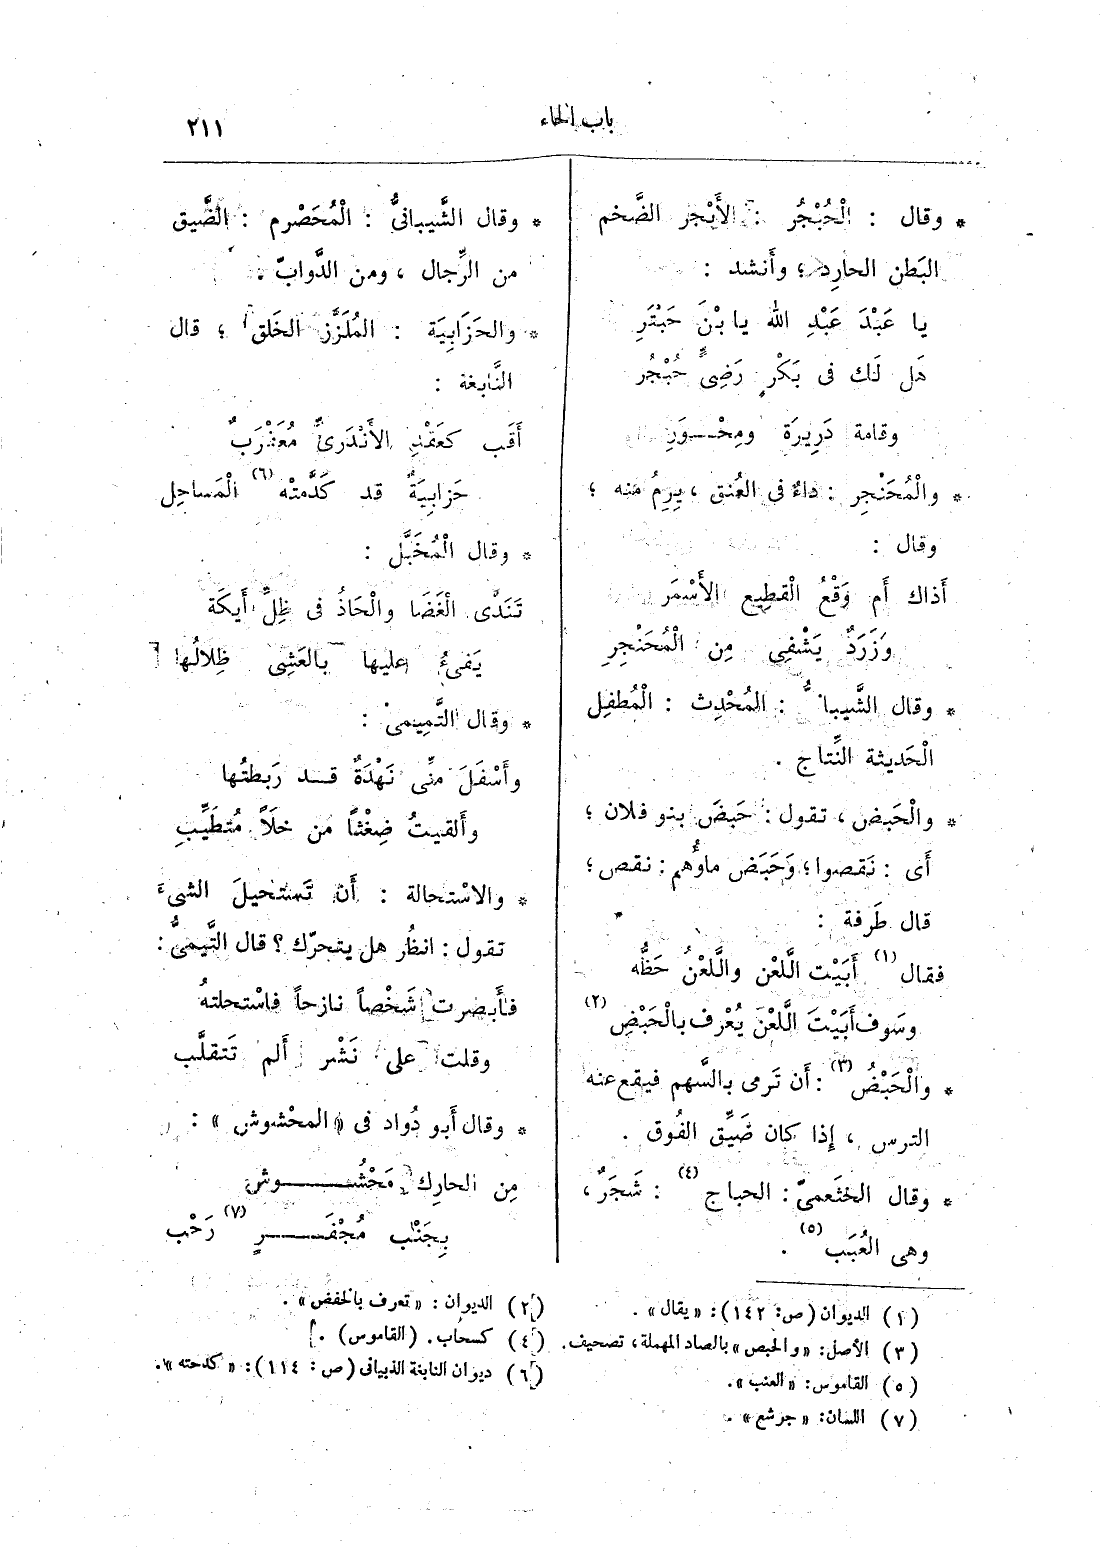 باب الحاء
٢١١
* وقال : الْحُبْجُر : الأَبْجر الضَّخم
البَطن الحارِد ؛ وأَنشد :
يا عَبْدَ عَبْدِ الله يا بْنَ حَبْتَرِ
هَل لَك فى بَكْرٍ رَضِىٍّ حُبْجُر
وقامة دَرِيرَة ومِحْـــوَرِ
* والْمُحَنْجِر : داءٌ فى العُنق ، يَرِمُ منه ؛
وقال :
أَذاك أَم وَقْعُ الْقطِيع الأَسْمَر
وَزَرَدٌ يَشْفِى مِن الْمُحَنْجِرِ
* وقال الشَّيبانىُّ : المُحْدِث : الْمُطفِل
الْحَديثة النِّتاج .
* والْحَبَض ، تقول : حَبَضَ بنو فلان ؛
أَى : نَقصوا ؛ وَحَبَض ماؤُهم : نقص ؛
قال طَرفة :
فقال (١) أَبَيْت الَّلعْن والَّلعْنُ حَظُّه
وسَوف أَبَيْتَ الَّلعْنَ يُعْرف بالْحَبْضِ (٢)
* والْحَبْضُ (٣) : أَن تَرمى بالسَّهم فيقع عنه
الترس ، إِذا كان ضَيِّق الفُوق .
* وقال الخثعمىّ : الحباج (٤) : شَجَرٌ ،
وهى العُبَب (٥) .
* وقال الشَّيبانىُّ : الْمُحَصْرم : الضَّيق
من الرِّجال ، ومن الدَّوابّ .
* والحَزَابِيَة : المُلَزَّز الخَلق ؛ قال
النَّابغة :
أَقَب كعَقْدِ الأَنْدَرىِّ مُعَقْرَبٌ
حَزابِيَةٌ قد كَدَّمتْه (٦) الْمَساحِل
* وقال الْمُخَبَّل :
تَنَدَّى الْغَضَا والْحَاذُ فى ظِلِّ أَيكَة
يَفىءُ عليها بالعَشِى ظِلالُها
* وقال التَّميمىّ :
وأَسْفَلَ منِّى نَهْدَةٌ قــد رَبطتُها
وأَلقيتُ ضِغْثاً من خلَاً مُتَطيِّبِ
* والاسْتحالة : أَن تَستحيلَ الشىءَ
تقول : انظُر هل يتحرّك ؟ قال التَّيمىُّ :
فأَبصرت شَخْصاً نازحاً فاسْتحلتهُ
وقلت على نَشْر أَلم تَتقلَّب
* وقال أَبو دُواد فى « المحْشوش » :
مِن الحارِك مَحْشُـــوش
بِجَنْب مُجْفَـــرٍ (٧) رَحْب
(١) الديوان (ص: ١٤٢): « يقال » .
(٢) الديوان : « تعرف بالخفض » .
(٣) الأصل: « والحبص » بالصاد المهملة، تصحيف.
(٤) كسحاب. (القاموس) .
(٥) القاموس: « العنب ».
(٦) ديوان النابغة الذبيانى (ص : ١١٤): « كدحته ».
(٧) اللسان: « جرشع » .